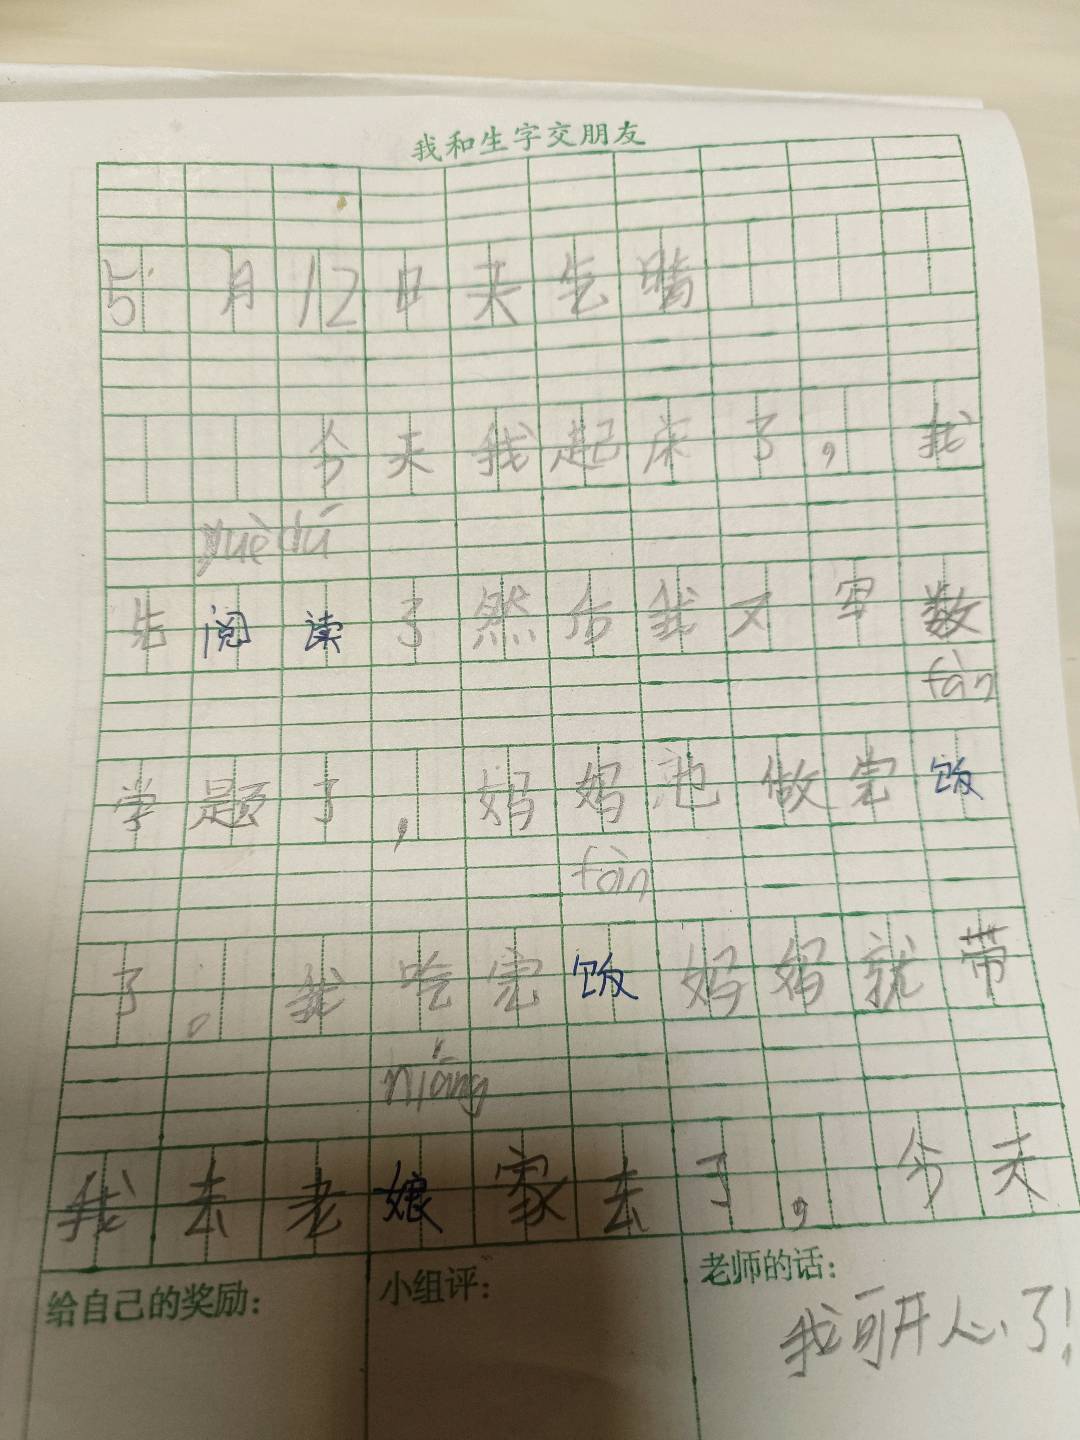 我和生字交朋友
5月12日天气晴
今天我起床了，我
yuè dú
先阅读了然后我又写数
fàn
学题了，妈妈也做完饭
fàn
了。我吃完饭妈妈就带
niáng
我去老娘家去了，今天
给自己的奖励： 小组评： 老师的话：
我可开心了！